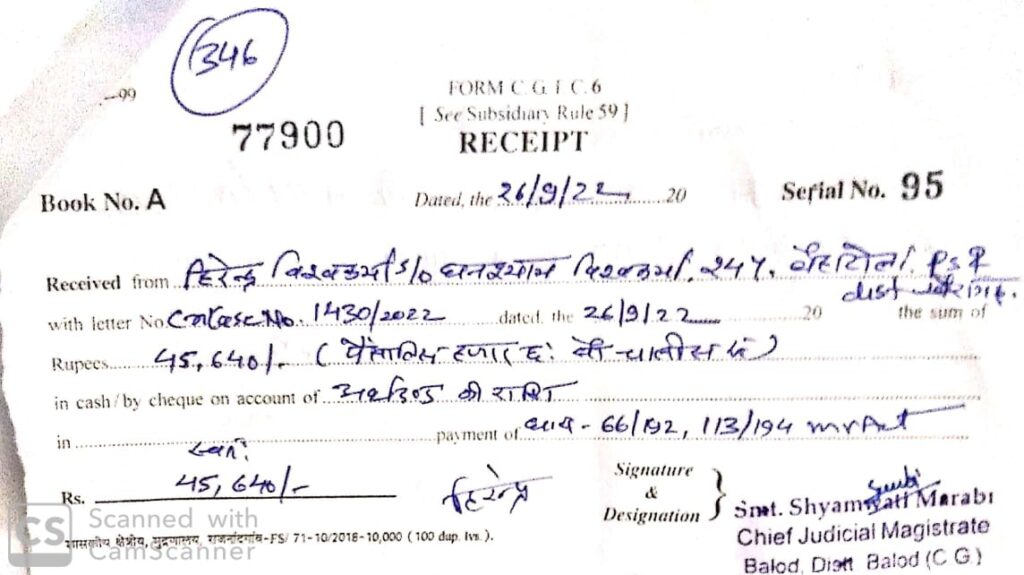 346
-99
FORM C. G. F. C. 6
[ See Subsidiary Rule 59 ]
77900
RECEIPT
Book No. A Dated, the 26/9/22 20 Serial No. 95
Received from हिरेन्द्र विश्वकर्मा s/o घनश्याम विश्वकर्मा, 24 y.
dist
with letter No. Case No. 1430/2022 dated, the 26/9/22 20 the sum of
Rupees 45,640/- (पैंतालिस हजार छः सौ चालीस रू)
in cash/by cheque on account of अर्थदण्ड की राशि
in payment of धारा - 66/192, 113/194 mv Act
Rs. 45,640/- हिरेन्द्र Signature & Designation
Smt. Shyamwati Marabi
Chief Judicial Magistrate
Balod, Distt Balod (C G.)
शासकीय क्षेत्रीय, मुद्रणालय, राजनांदगांव-FS/ 71-10/2018-10,000 ( 100 dup. lvs. ).
CS Scanned with
CamScanner